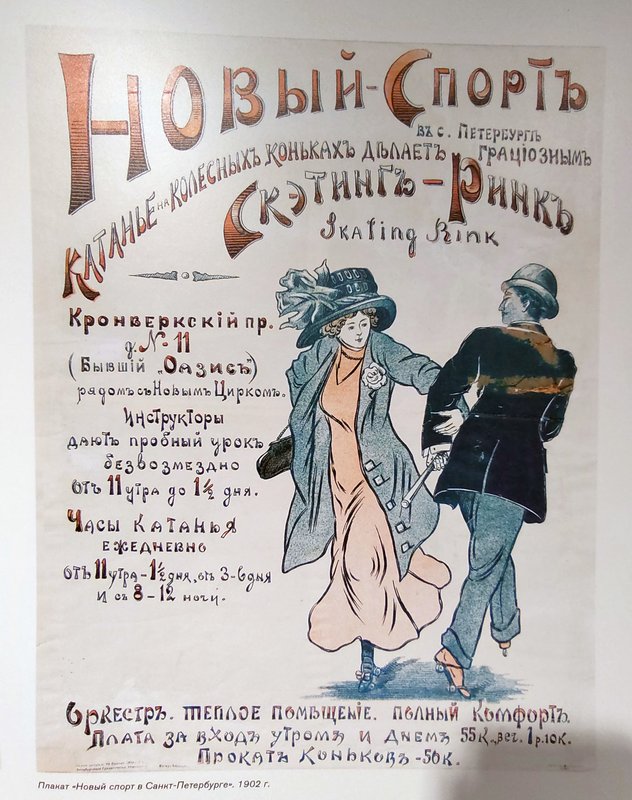 Новый-Спортъ
въ С. Петербургѣ
Катанье на колесныхъ конькахъ дѣлаетъ граціознымъ
Скэтингъ-Ринкъ
Skating Rink
Кронверкскій пр.
д. № 11
(Бывшій „Оазисъ")
рядомъ съ Новымъ Циркомъ.
Инструкторы
даютъ пробный урокъ
безвозмездно
отъ 11 утра до 1½ дня.
Часы катанья
ежедневно
отъ 11 утра-1½ дня, отъ 3-6 дня
и съ 8-12 ночи.
Оркестръ. Теплое помѣщеніе. Полный комфортъ.
Плата за входъ утромъ и днемъ 55 к., веч. 1 р. 10 к.
Прокатъ коньковъ-50к.
Плакат «Новый спорт в Санкт-Петербурге». 1902 г.